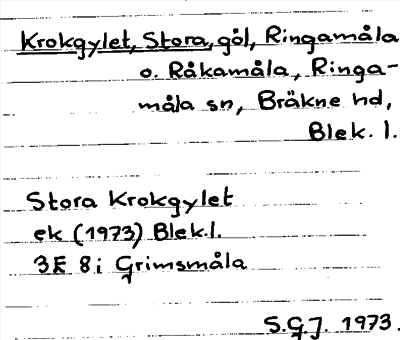 Krokgylet, Stora, göl, Ringamåla
o. Råkamåla, Ringa-
måla sn, Bräkne hd,
Blek. l.
Stora Krokgylet
ek (1973) Blek.l.
3E 8i Grimsmåla
S.G.J. 1973.